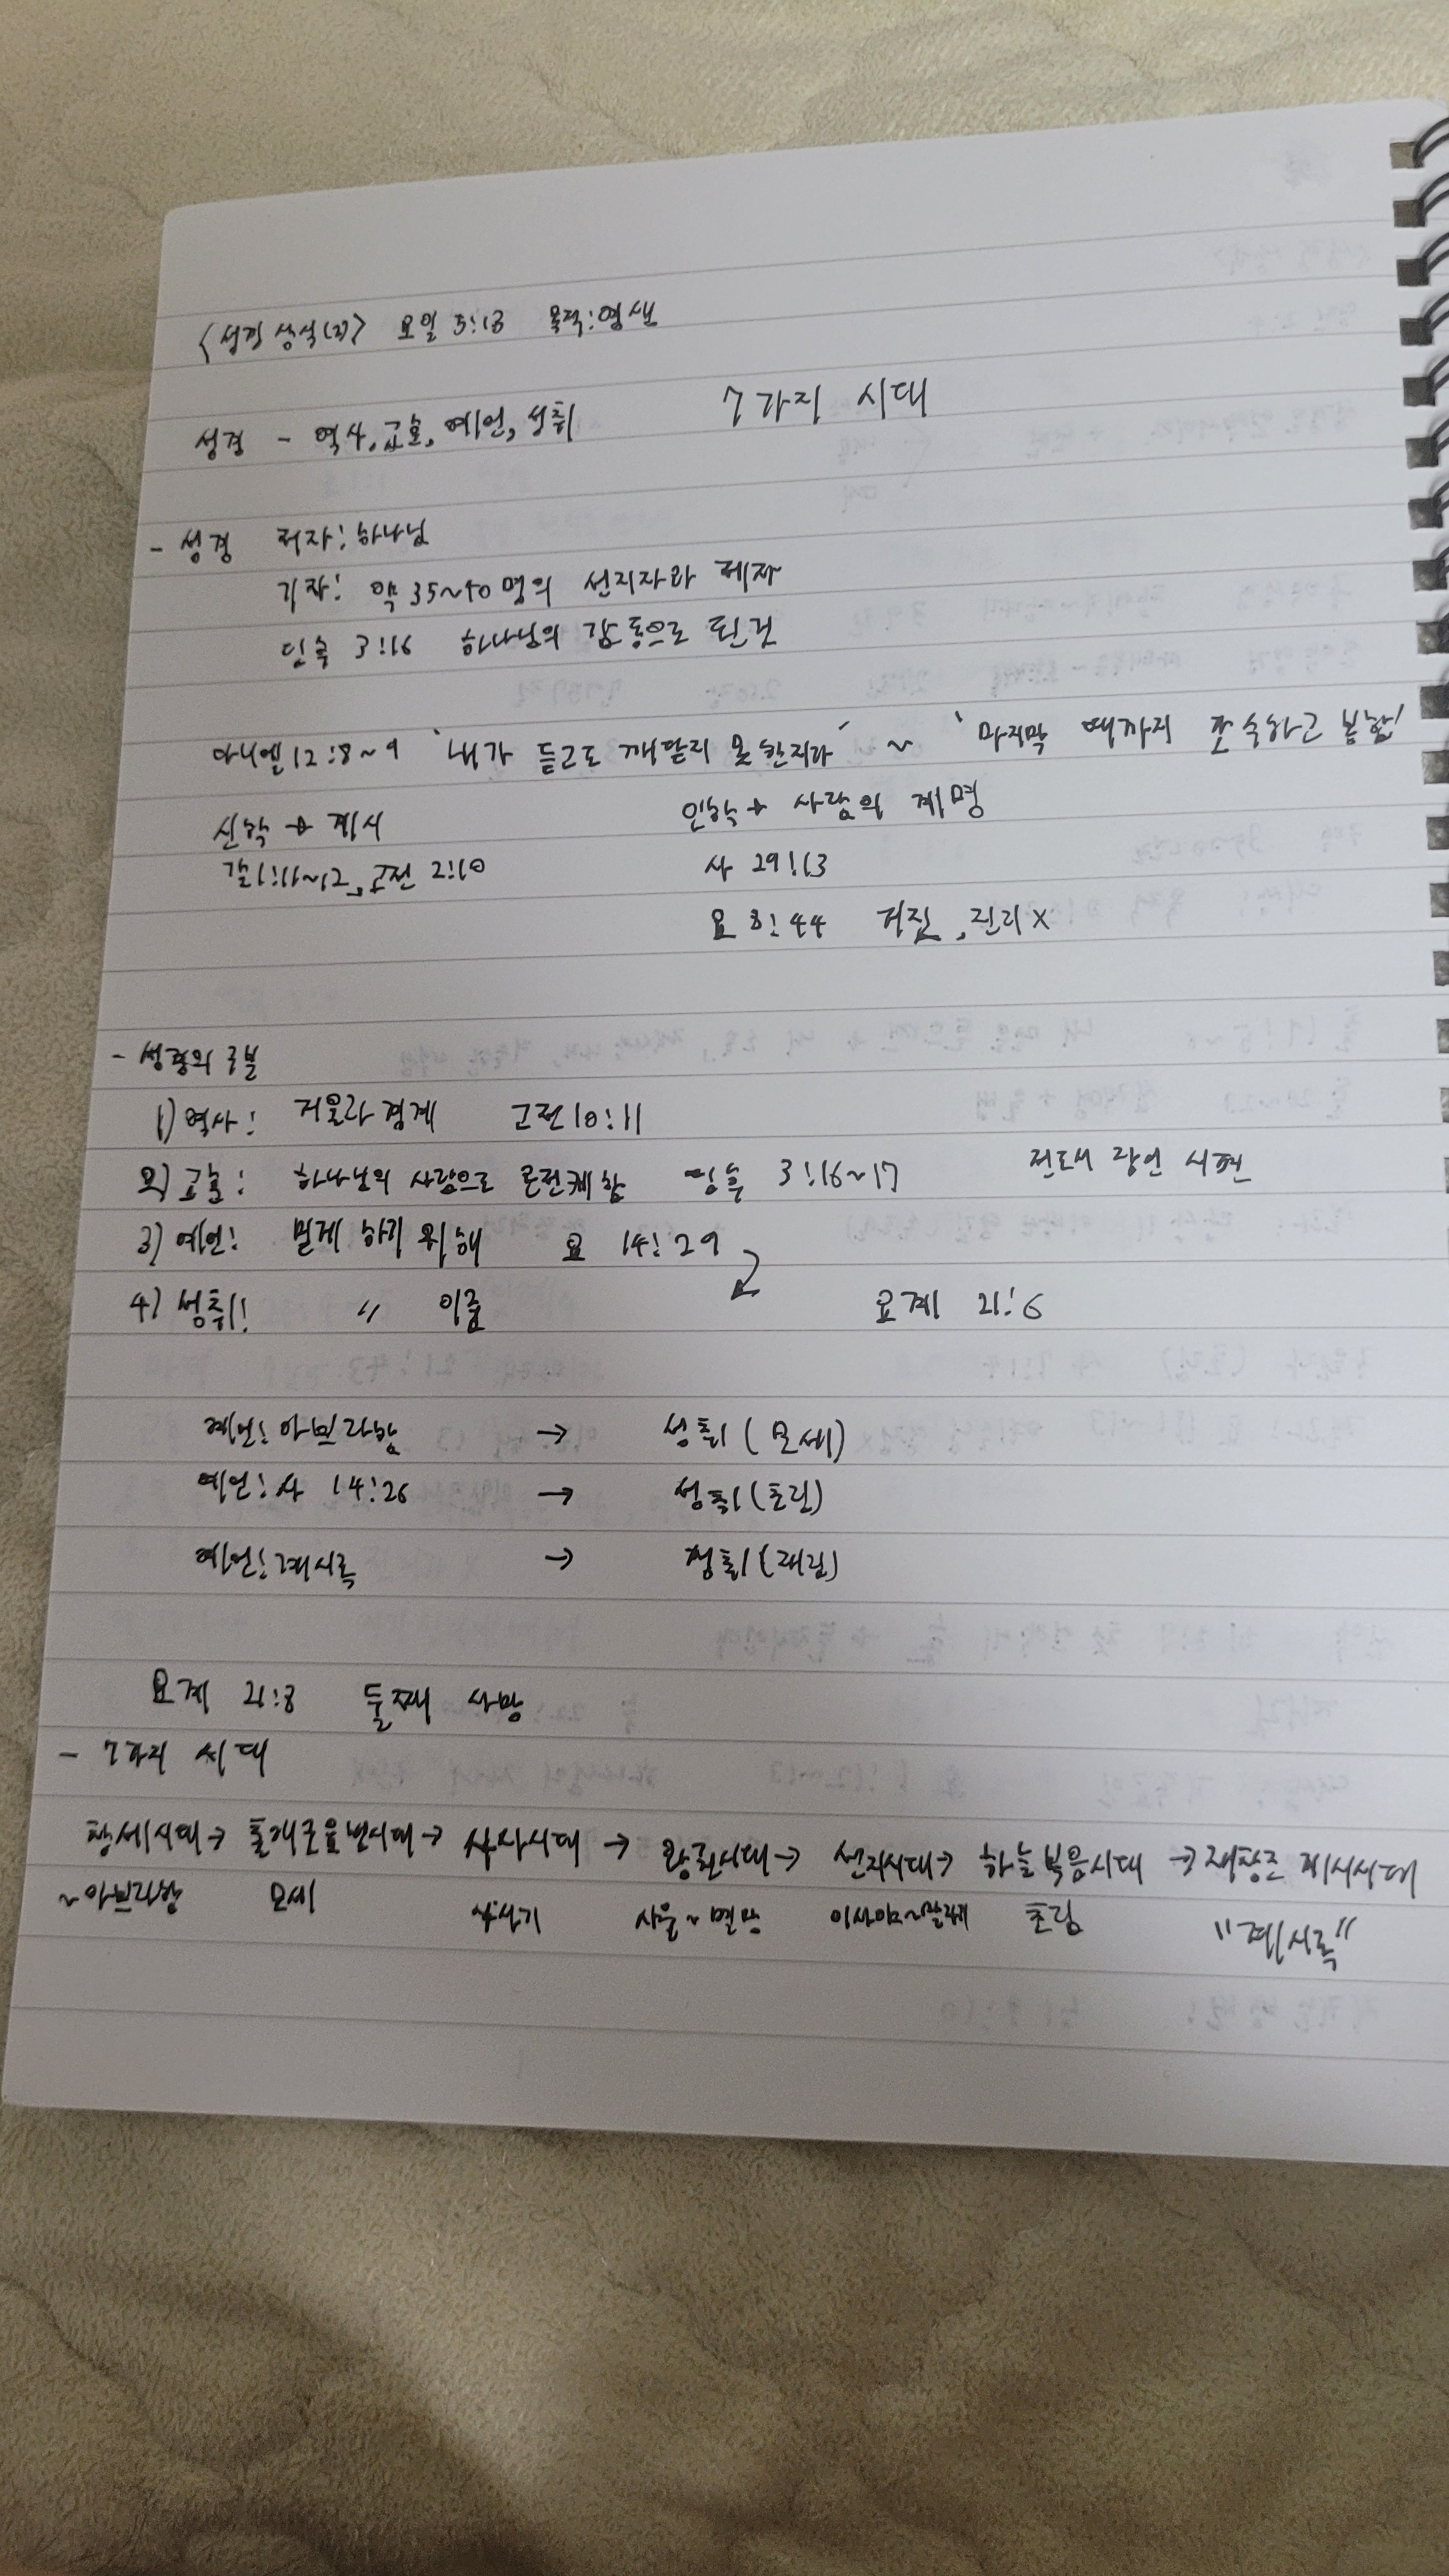 <성경 상식(2)> 요일 5:13 목적:영생
성경 - 역사,교훈,예언,성취 7가지 시대
- 성경 저자:하나님
기자: 약 35~40명의 선지자와 제자
딤후 3:16 하나님의 감동으로 된 것
다니엘 12:8~9 '내가 듣고도 깨닫지 못한지라' ~ '마지막 때까지 간수하고 봉함'
신학 → 계시 인학 → 사람의 계명
갈1:11~12, 고전 2:10 사 29:13
요 8:44 거짓, 진리X
- 성경의 구분
1) 역사: 거울과 경계 고전10:11
2) 교훈: 하나님의 사람으로 온전케 함 딤후 3:16~17 전도서 잠언 시편
3) 예언: 믿게 하기 위해 요 14:29
4) 성취: 〃 이룸 요계 21:6
예언:아브라함 → 성취(모세)
예언:사 14:26 → 성취(초림)
예언:계시록 → 성취(재림)
요계 21:8 둘째 사망
- 7가지 시대
창세시대→ 출애굽율법시대→ 사사시대 → 왕권시대→ 선지시대→ 하늘복음시대 → 재창조 계시시대
~아브라함 모세 사사기 사울~멸망 이사야~말라기 초림 "계시록"